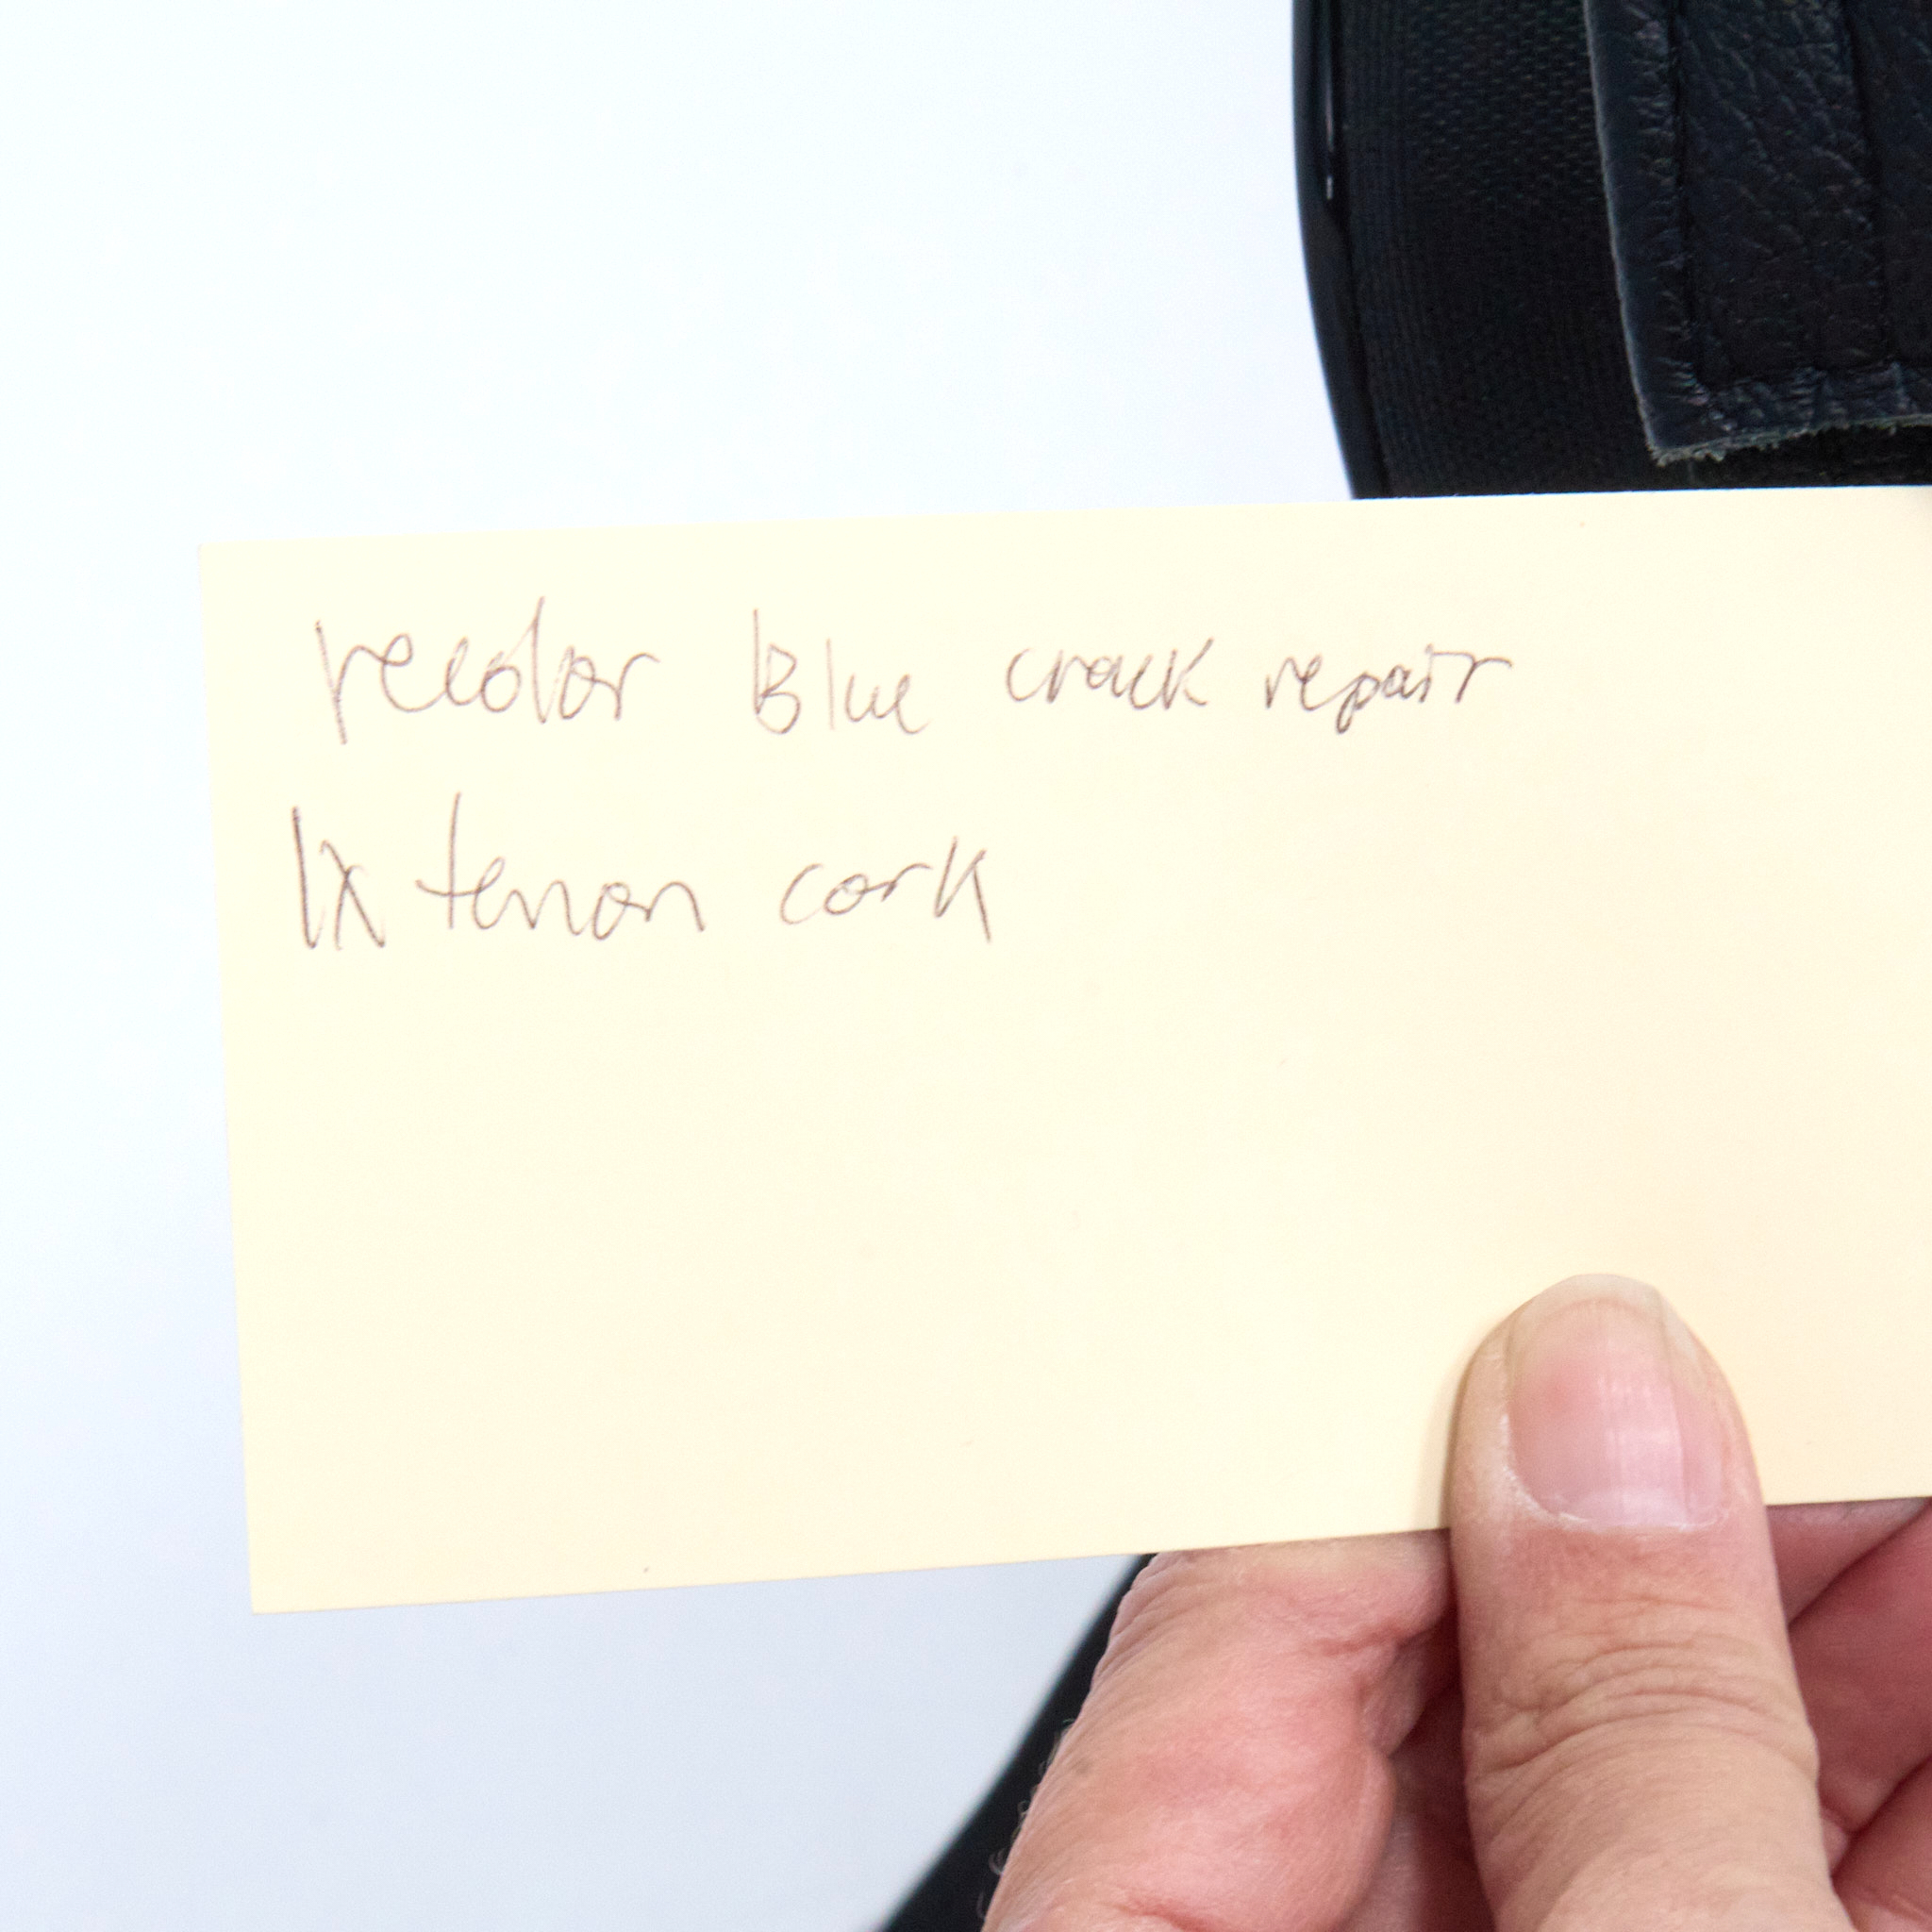 recolor Blue crack repair
1x tenon cork